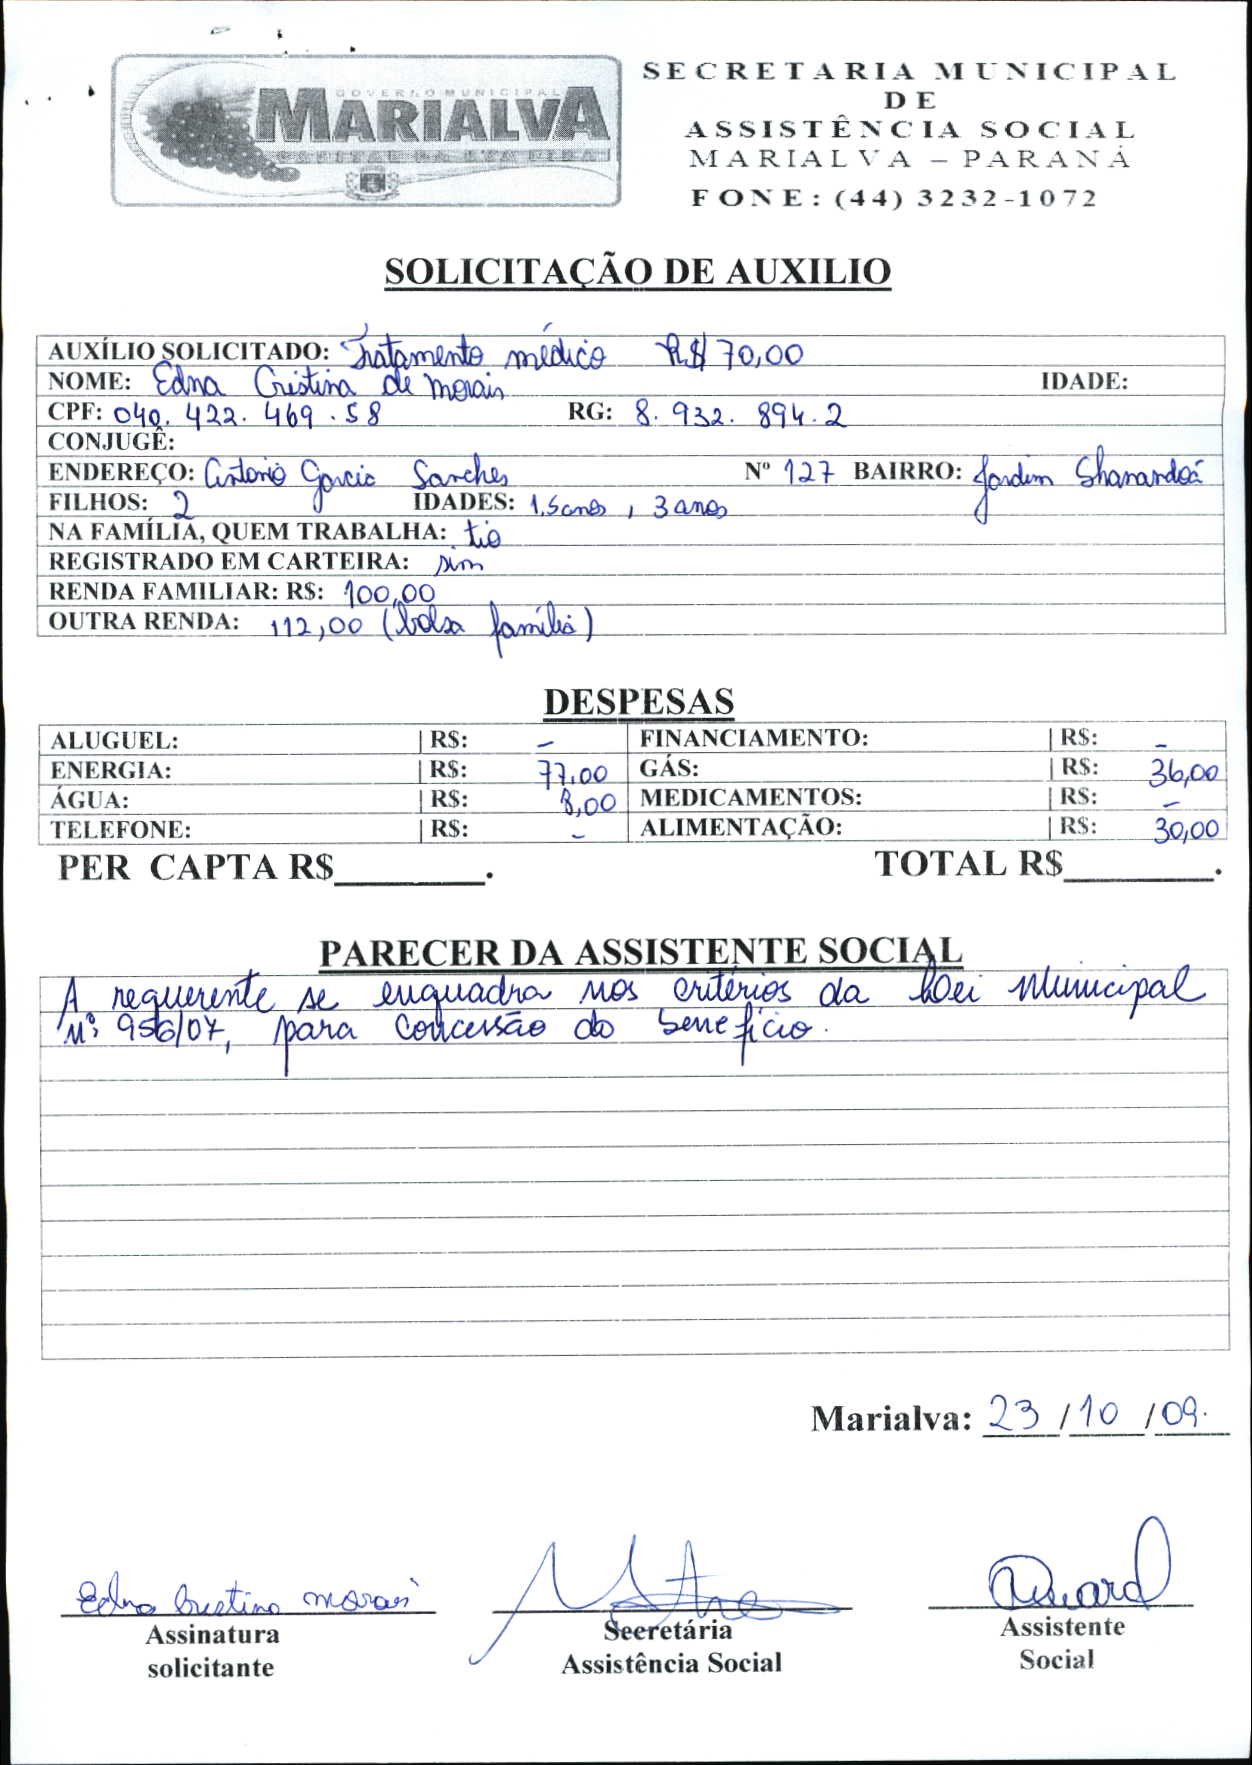 GOVERNO MUNICIPAL
MARIALVA
CAPITAL DA UVA FINA
SECRETARIA MUNICIPAL
DE
ASSISTÊNCIA SOCIAL
MARIALVA – PARANÁ
FONE: (44) 3232-1072
SOLICITAÇÃO DE AUXILIO
AUXÍLIO SOLICITADO: Tratamento médico R$ 70,00
NOME: Edna Cristina de Morais IDADE:
CPF: 040.422.469.58 RG: 8.932.894.2
CONJUGÊ:
ENDEREÇO: Antonio Garcia Sanches Nº 127 BAIRRO: Jardim Shanandoá
FILHOS: 2 IDADES: 1,5 anos, 3 anos
NA FAMÍLIA, QUEM TRABALHA: tio
REGISTRADO EM CARTEIRA: sim
RENDA FAMILIAR: R$: 100,00
OUTRA RENDA: 112,00 (bolsa família)
DESPESAS
ALUGUEL: R$: – FINANCIAMENTO: R$: –
ENERGIA: R$: 77,00 GÁS: R$: 36,00
ÁGUA: R$: 8,00 MEDICAMENTOS: R$: –
TELEFONE: R$: – ALIMENTAÇÃO: R$: 30,00
PER CAPTA R$________. TOTAL R$________.
PARECER DA ASSISTENTE SOCIAL
A requerente se enquadra nos critérios da Lei Municipal
nº 956/07, para concessão do benefício.
Marialva: 23/10/09.
Edna Cristina Morais
Assinatura Secretária Assistente
solicitante Assistência Social Social